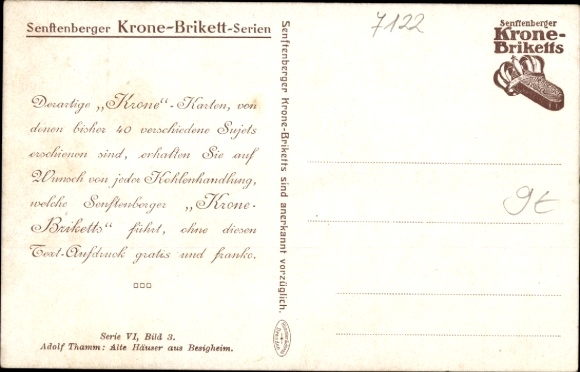 Senftenberger Krone-Brikett-Serien
Derartige „Krone“-Karten, von
denen bisher 40 verschiedene Sujets
erschienen sind, erhalten Sie auf
Wunsch von jeder Kohlenhandlung,
welche Senftenberger „Krone-
Briketts“ führt, ohne diesen
Text-Aufdruck gratis und franko.
Serie VI, Bild 3.
Adolf Thamm: Alte Häuser aus Besigheim.
Senftenberger Krone-Briketts sind anerkannt vorzüglich.
7122
Senftenberger
Krone-
Briketts
9€